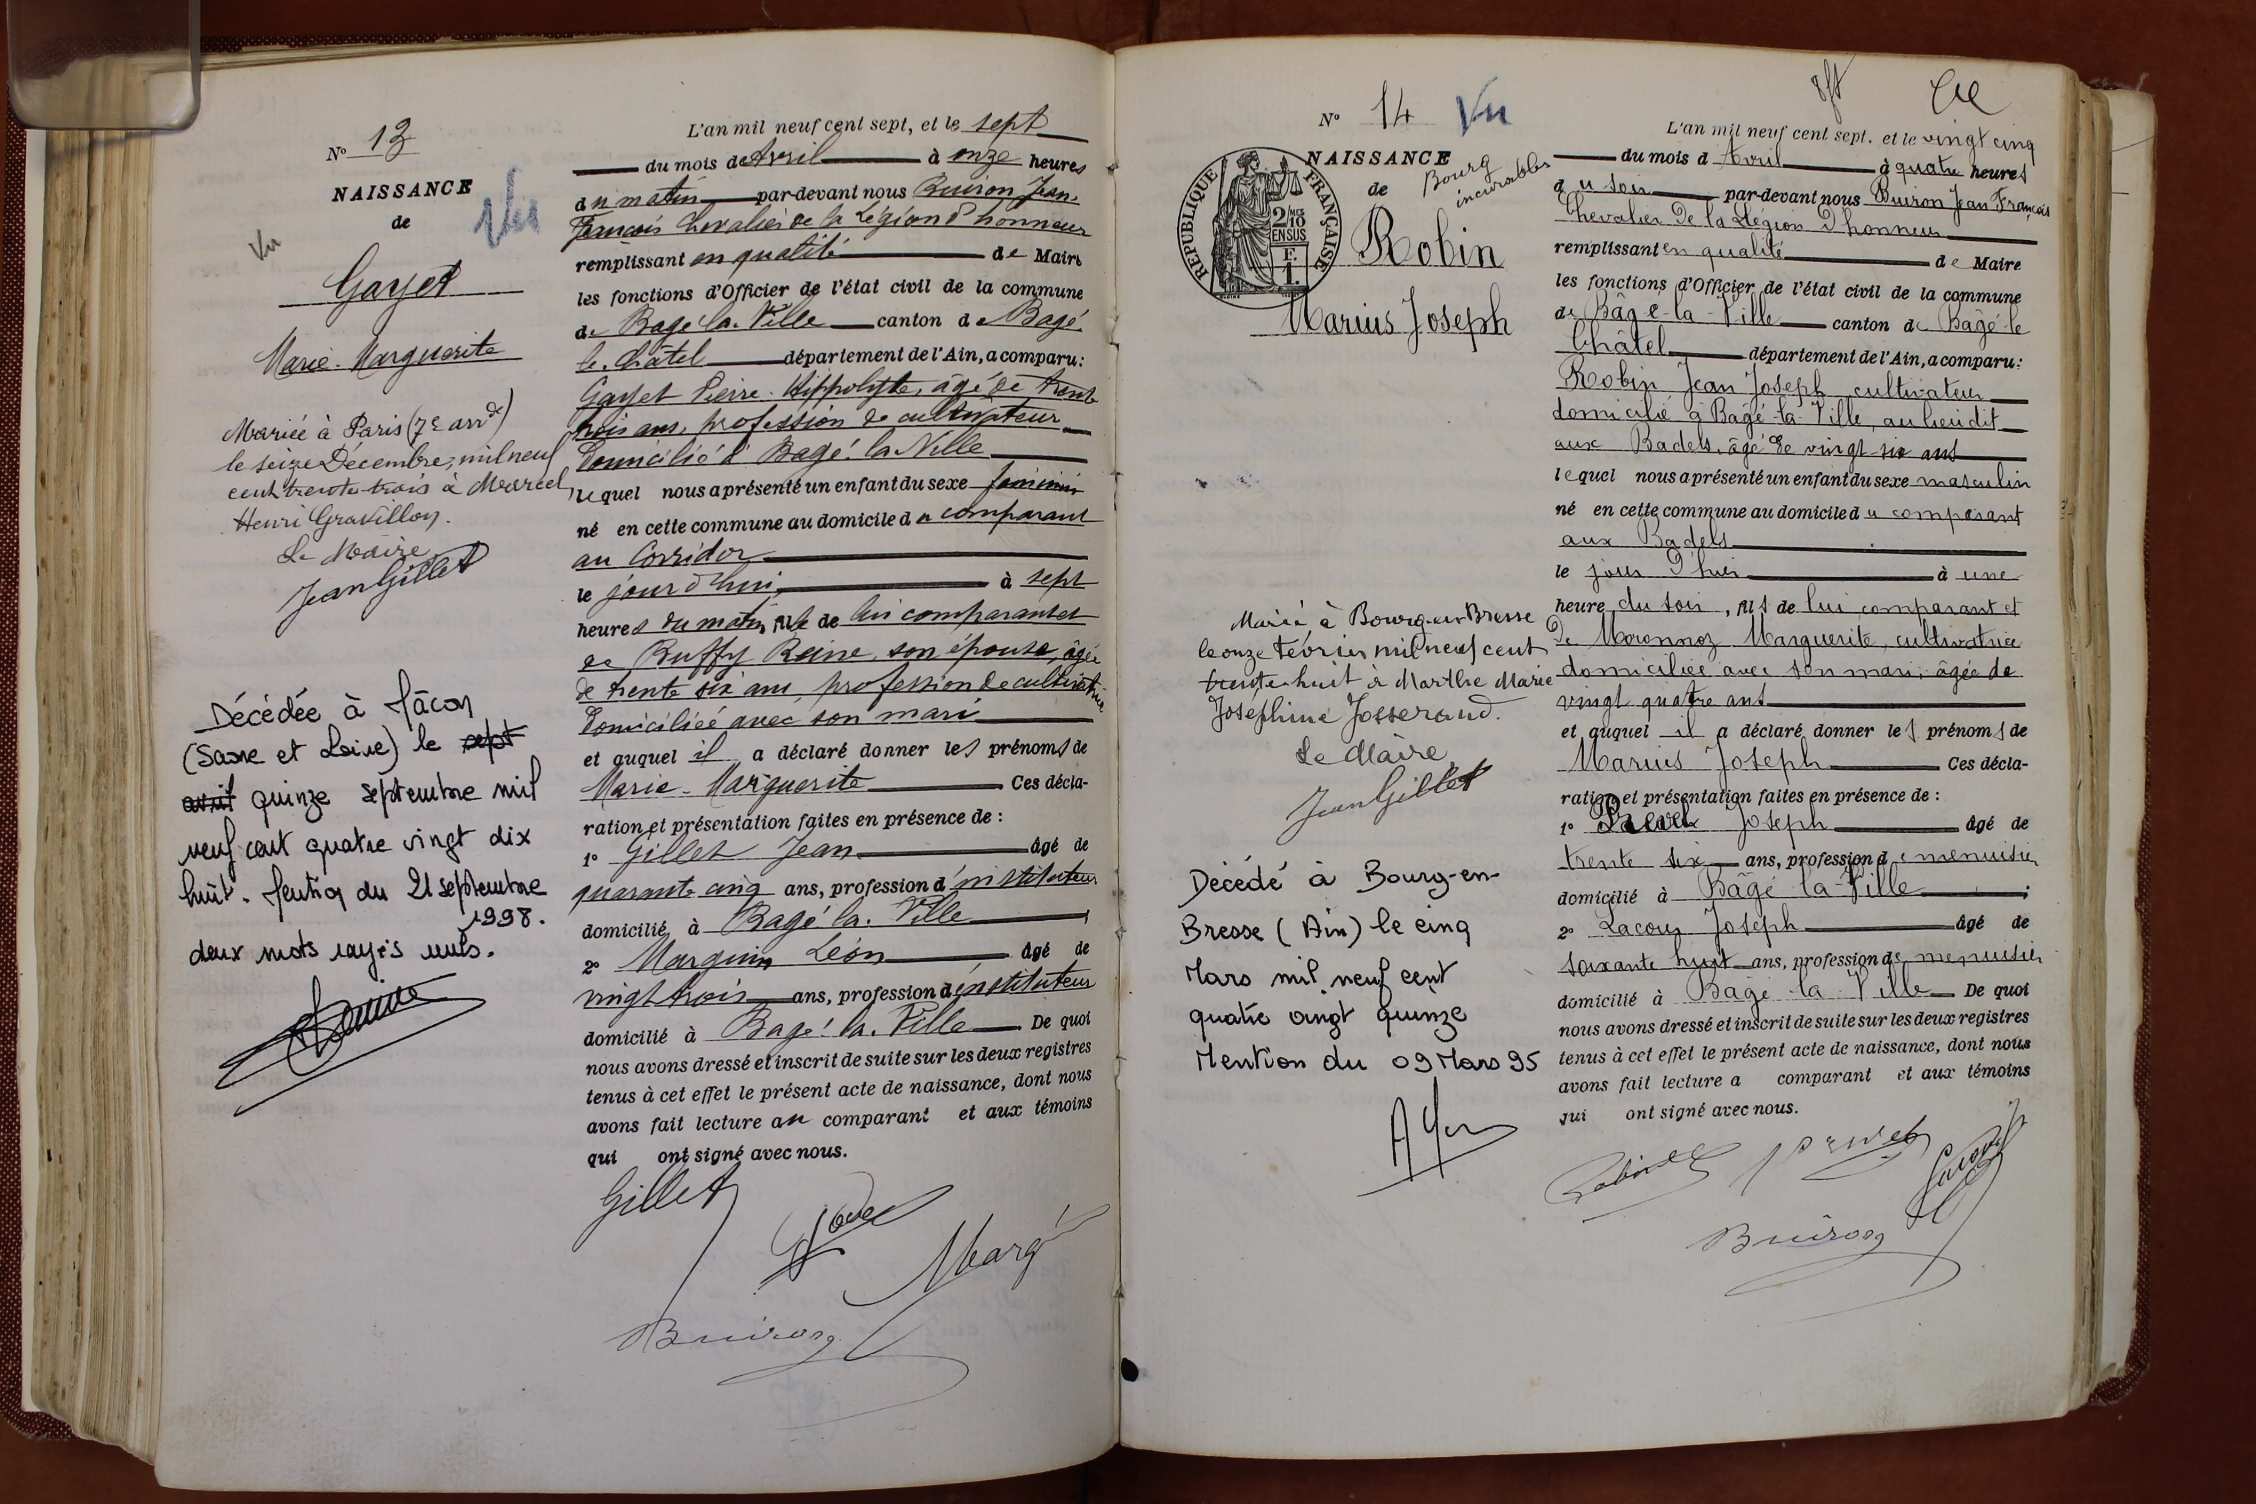 N° 13
NAISSANCE
de
Vu
Vu
Gayet
Marie-Marguerite
Mariée à Paris (7e arrdt)
le seize Décembre mil neuf
cent trente-trois à Marcel,
Henri Gravillon.
Le Maire,
Jean Gillet
Décédée à Mâcon
(Saône et Loire) le sept
avril quinze septembre mil
neuf cent quatre vingt dix
huit. Mention du 21 septembre
1998.
deux mots rayés nuls.
L'an mil neuf cent sept, et le sept
du mois de Avril à onze heures
du matin par-devant nous Buiron Jean-
François Chevalier de la Légion d'honneur
remplissant en qualité de Maire
les fonctions d'Officier de l'état civil de la commune
de Bagé la Ville canton de Bagé
le Châtel département de l'Ain, a comparu:
Gayet Pierre Hippolyte, âgé de trente
trois ans, profession de cultivateur
domicilié à Bagé la Ville
lequel nous a présenté un enfant du sexe féminin
né en cette commune au domicile du comparant
au Corridor
le jour d'hui à sept
heures du matin, fille de lui comparant et
de Ruffy Reine, son épouse, âgée
de trente six ans, profession de cultivatrice
domiciliée avec son mari
et auquel il a déclaré donner les prénoms de
Marie-Marguerite Ces décla-
ration et présentation faites en présence de :
1° Gillet Jean âgé de
quarante cinq ans, profession d'instituteur
domicilié à Bagé la Ville
2° Marguin Léon âgé de
vingt trois ans, profession d'instituteur
domicilié à Bagé la Ville De quoi
nous avons dressé et inscrit de suite sur les deux registres
tenus à cet effet le présent acte de naissance, dont nous
avons fait lecture au comparant et aux témoins
qui ont signé avec nous.
Gillet
Buiron
N° 14 Vu
NAISSANCE
de Bourg
incurables
RÉPUBLIQUE FRANÇAISE
2/10 EN SUS
F. 1.
Robin
Marius Joseph
Marié à Bourg-en-Bresse
le onze Février mil neuf cent
trente-huit à Marthe Marie
Joséphine Josserand.
Le Maire,
Jean Gillet
Décédé à Bourg-en-
Bresse (Ain) le cinq
Mars mil neuf cent
quatre vingt quinze
Mention du 09 Mars 95
L'an mil neuf cent sept, et le vingt cinq
du mois d Avril à quatre heures
du soir par-devant nous Buiron Jean François
Chevalier de la Légion d'honneur
remplissant en qualité de Maire
les fonctions d'Officier de l'état civil de la commune
de Bâgé-la-Ville canton de Bâgé-le
Châtel département de l'Ain, a comparu:
Robin Jean Joseph cultivateur
domicilié à Bâgé-la-Ville, au lieu dit
aux Badels, âgé de vingt-six ans
lequel nous a présenté un enfant du sexe masculin
né en cette commune au domicile du comparant
aux Badels
le jour d'hier à une
heure du soir, fils de lui comparant et
de Marguerite, cultivatrice
domiciliée avec son mari, âgée de
vingt quatre ans
et auquel il a déclaré donner les prénoms de
Marius Joseph Ces décla-
ration et présentation faites en présence de :
1° Joseph âgé de
trente six ans, profession de menuisier
domicilié à Bâgé la-Ville ;
2° Lacour Joseph âgé de
soixante huit ans, profession de menuisier
domicilié à Bâgé la Ville De quoi
nous avons dressé et inscrit de suite sur les deux registres
tenus à cet effet le présent acte de naissance, dont nous
avons fait lecture a comparant et aux témoins
qui ont signé avec nous.
Robin
Buiron